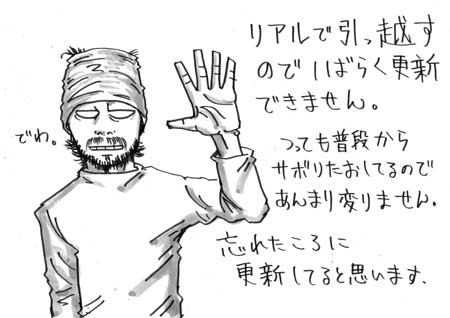 リアルで引っ越す
のでしばらく更新
できません。
つっても普段から
サボりたおしてるので
あんまり変りません.
忘れたころに
更新してると思います.
でわ。